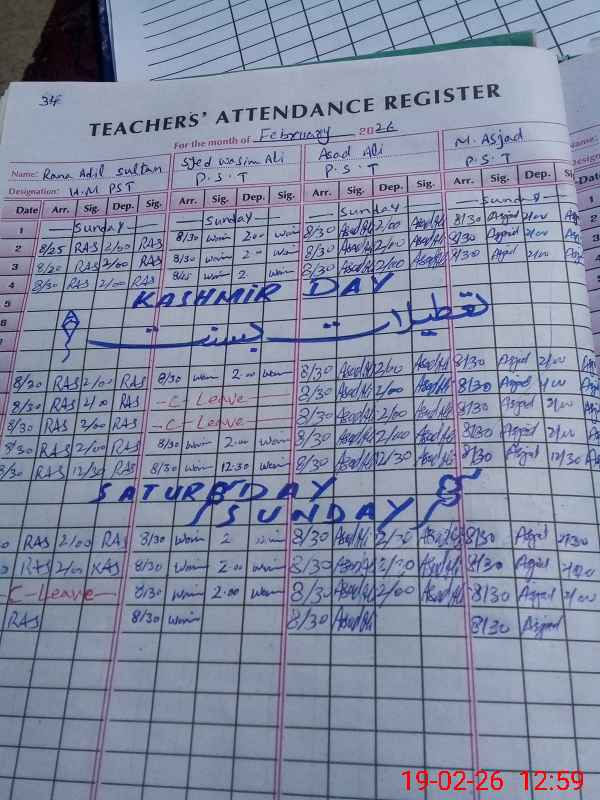 34
TEACHERS' ATTENDANCE REGISTER
For the month of February 2026
Name: Rana Adil Sultan Syed Wasim Ali Asad Ali M. Asjad
Designation: H.M PST P.S.T P.S.T P.S.T
Date Arr. Sig. Dep. Sig. Arr. Sig. Dep. Sig. Arr. Sig. Dep. Sig. Arr. Sig. Dep.
1 Sunday Sunday Sunday Sunday
2 8/25 RAS 2/00 RAS 8/30 Wasim 2.00 Wasim 8/30 Asad Ali 2/00 Asad Ali 8/30 Asjad 2/00
3 8/20 RAS 2/00 RAS 8/30 Wasim 2.00 Wasim 8/30 Asad Ali 2/00 Asad Ali 8/30 Asjad 2/00
4 8/30 RAS 2/00 RAS 8/25 Wasim 2 Wasim 8/30 Asad Ali 2/00 Asad Ali 8/30 Asjad 2/00
5 KASHMIR DAY
تعطیلات بسنت
8/20 RAS 2/00 RAS 8/30 Wasim 2.00 Wasim 8/30 Asad Ali 2/00 Asad Ali 8/30 Asjad 2/00
8/30 RAS 2/00 RAS C-Leave 8/30 Asad Ali 2/00 Asad Ali 8/30 Asjad 2/00
8/30 RAS 2/00 RAS C-Leave 8/30 Asad Ali 2/00 Asad Ali 8/30 Asjad 2/00
8/30 RAS 2/00 RAS 8/30 Wasim 2.00 Wasim 8/30 Asad Ali 2/00 Asad Ali 8/30 Asjad 2/00
8/30 RAS 12/30 RAS 8/30 Wasim 12.30 Wasim 8/30 Asad Ali 12/30 Asad Ali 8/30 Asjad 12/30
SATURDAY
SUNDAY
RAS 2/00 RAS 8/30 Wasim 2 Wasim 8/30 Asad Ali Asad Ali 8/30 Asjad
RAS 2/00 RAS 8/30 Wasim 2.00 Wasim 8/30 Asad Ali Asad Ali 8/30 Asjad 2/00
C-Leave 8/30 Wasim 2.00 Wasim 8/30 Asad Ali 2/00 Asad Ali 8/30 Asjad 2/00
RAS 8/30 Wasim 8/30 Asad Ali 8/30 Asjad
19-02-26 12:59